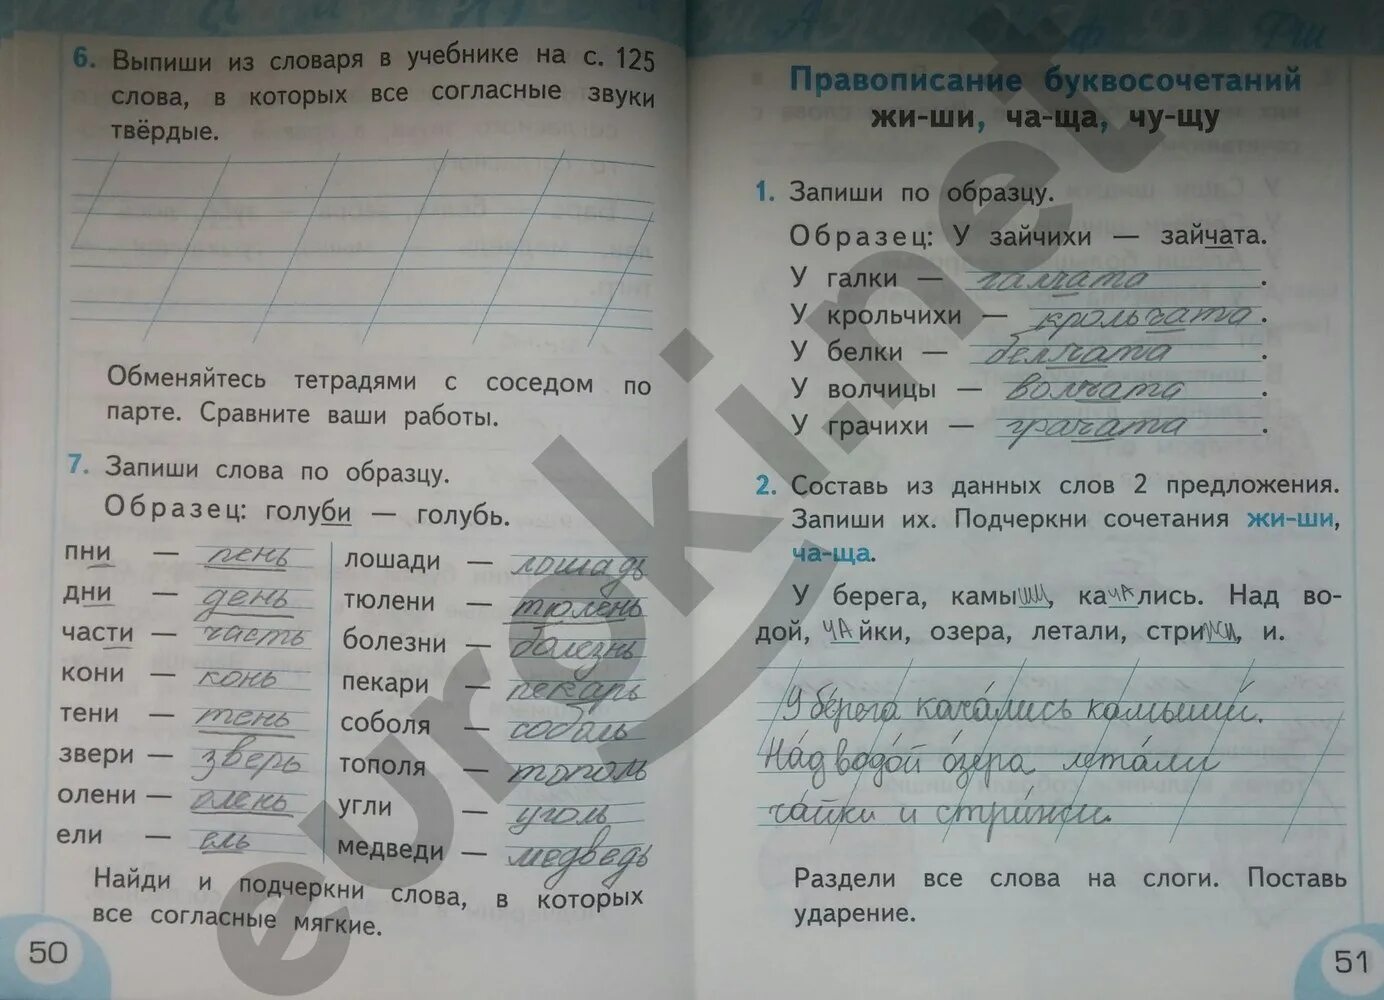 6. Выпиши из словаря в учебнике на с. 125
слова, в которых все согласные звуки
твёрдые.
Обменяйтесь тетрадями с соседом по
парте. Сравните ваши работы.
7. Запиши слова по образцу.
Образец: голуби — голубь.
пни — пень
дни — день
части — часть
кони — конь
тени — тень
звери — зверь
олени — олень
ели — ель
лошади — лошадь
тюлени — тюлень
болезни — болезнь
пекари — пекарь
соболя — соболь
тополя — тополь
угли — уголь
медведи — медведь
Найди и подчеркни слова, в которых
все согласные мягкие.
50
Правописание буквосочетаний
жи-ши, ча-ща, чу-щу
1. Запиши по образцу.
Образец: У зайчихи — зайчата.
У галки — галчата.
У крольчихи — крольчата.
У белки — белчата.
У волчицы — волчата.
У грачихи — грачата.
2. Составь из данных слов 2 предложения.
Запиши их. Подчеркни сочетания жи-ши,
ча-ща.
У берега, камыши, качались. Над во-
дой, чайки, озера, летали, стрижи, и.
У берега качались камыши.
Над водой озера летали
чайки и стрижи.
Раздели все слова на слоги. Поставь
ударение.
51
euroki.net